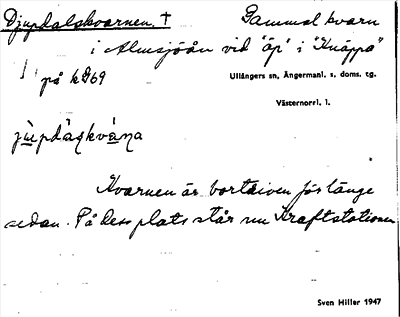 Djupdalskvarnen. † Gammal kvarn
i Almsjöån vid "Äp" i "Knäppa"
på k 969
Ullångers sn, Ångermanl. s. doms. tg.
Västernorrl. l.
jùpdàɳkvá̱ɳa
Kvarnen är bortriven för länge
sedan. På dess plats står nu Kraftstationen
Sven Hiller 1947